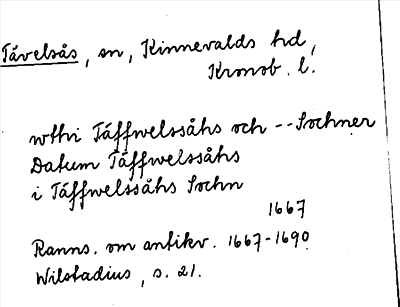 Tävelsås, sn, Kinnevalds hd,
Kronob. l.
wthi Täffwelssåhs och -- Sochner
Datum Täffwelssåhs
i Täffwelssåhs Sochn
1667
Ranns. om antikv. 1667-1690
Wilstadius, s. 21.